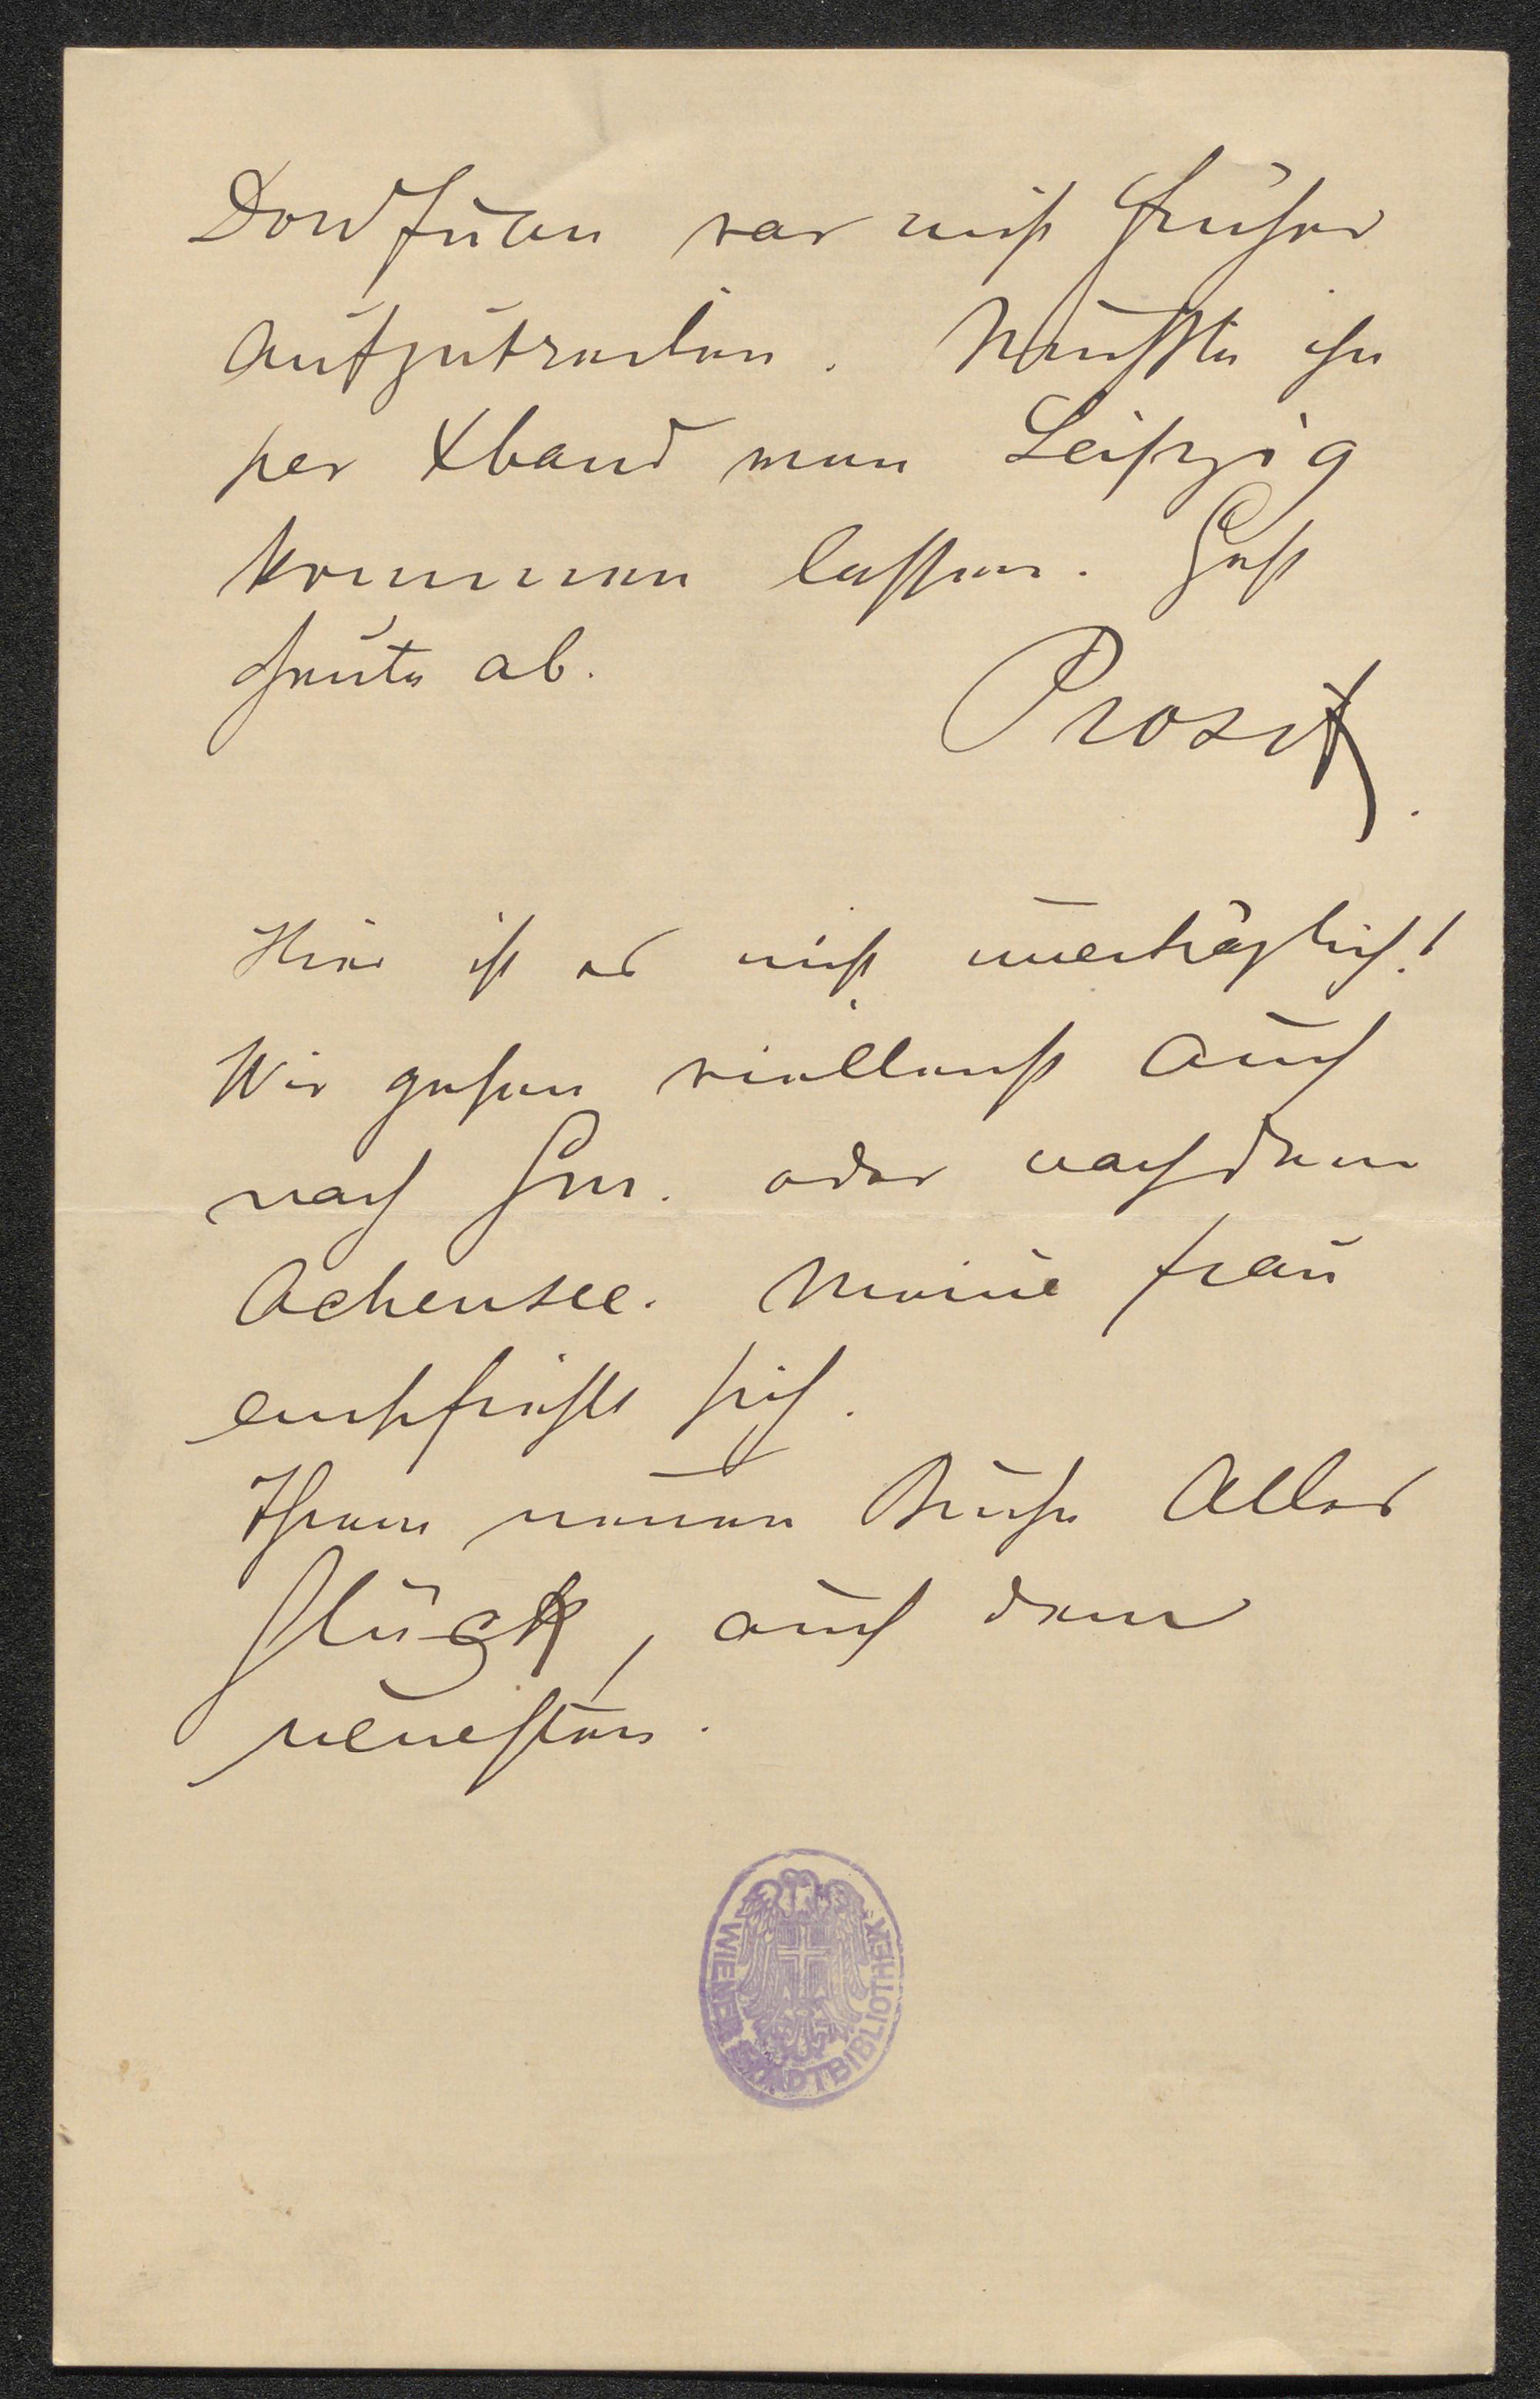 Don Juan war nicht früher
aufzutreiben. Mußte ihn
per Xband von Leipzig
kommen lassen. Geht
heute ab.
Prosit.
Hier ist es nicht unerträglich!
Wir gehen vielleicht auch
nach Gm. oder nach dem
Achensee. Meine Frau
empfiehlt sich.
Ihrem neuen Buche Alles
Glück, auch dem
neuesten.
WIENER STADTBIBLIOTHEK